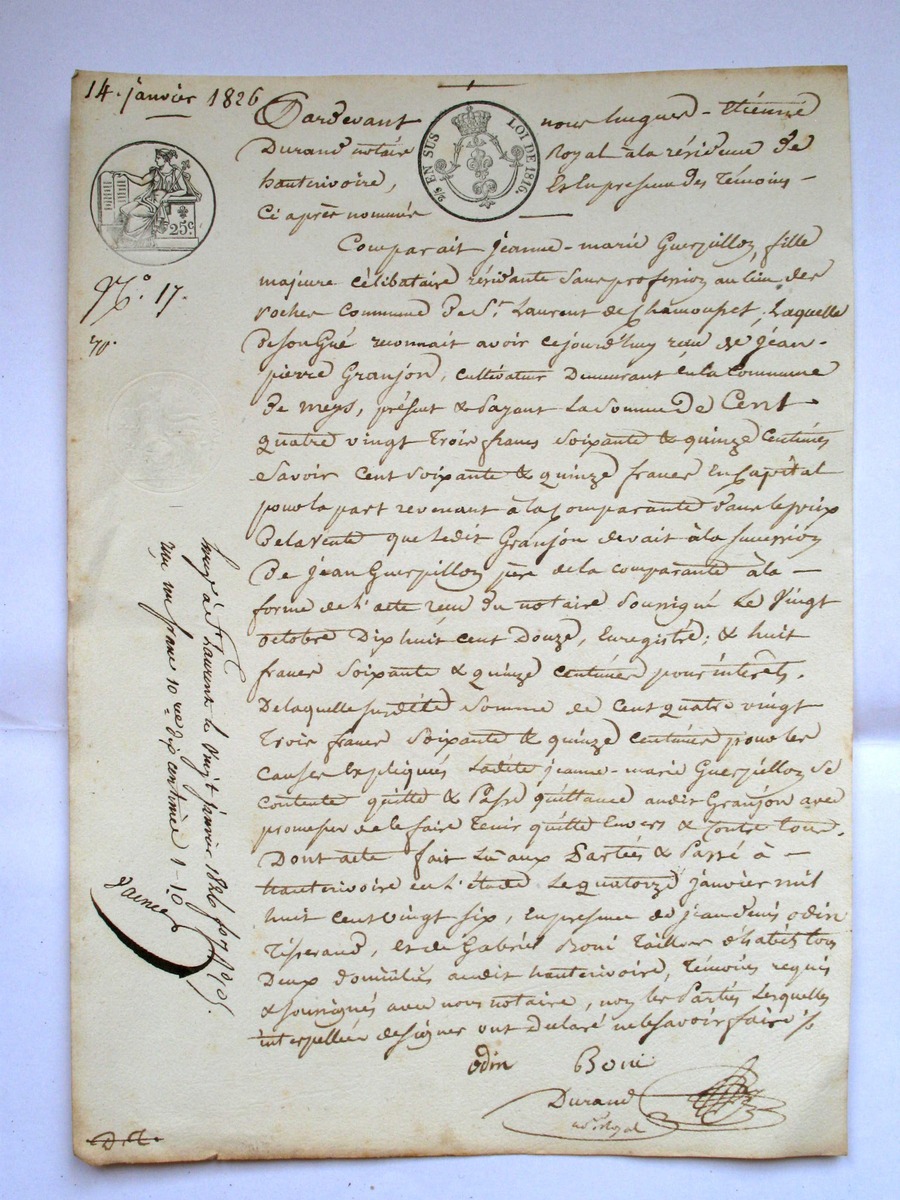 14. janvier 1826
25 c
2/5 EN SUS LOI DE 1816.
N.° 17.
Pardevant nous hugues-étienne
Durand notaire Royal à la résidence de
hauterivoire, Et en presence des Témoins
Ci après nommés
Comparait jeanne-marie Guerpillon, fille
majeure célibataire résidante sans profession au lieu des
roches Commune de S.t Laurent de Chamousset, Laquelle
de son Gré reconnait avoir cejourd'huy reçu de jean-
pierre Granjon, cultivateur Demeurant en la Commune
de meys, présent & payant La Somme de Cent
quatre vingt Trois francs Soixante & quinze Centimes
Savoir Cent Soixante & quinze francs En Capital
pour la part revenant à la Comparante dans le prix
De la Vente que Ledit Granjon devait à la succession
De jean Guerpillon père de la comparante à la
forme de L'acte reçu du notaire Soussigné Le Vingt
octobre Dix huit cent Douze, Enregistré; & huit
francs Soixante & quinze Centimes pour intérêts.
De laquelle susdite Somme de Cent quatre vingt
Trois francs Soixante & quinze centimes pour les
causes Expliquées Ladite jeanne-marie Guerpillon se
contente quitte & Passe quittance audit Granjon avec
promesse de le faire Tenir quitte Envers & Contre tous.
Dont acte fait Lu aux Parties & Passé à
hauterivoire en L'étude Le quatorze janvier mil
huit cent vingt six, En presence de jean denis odin
Tisserand, et de Gabriel Boni Tailleur d'habits tous
Deux domiciliés audit hauterivoire, Témoins requis
& soussignés avec nous notaire, non les Parties Lesquelles
interpellées de signer ont Déclaré ne le savoir faire
odin Boni
Durand
no.re Royal
à S.t Laurent le vingt janvier 1826
reçu un franc 10 c dix centimes 1-10